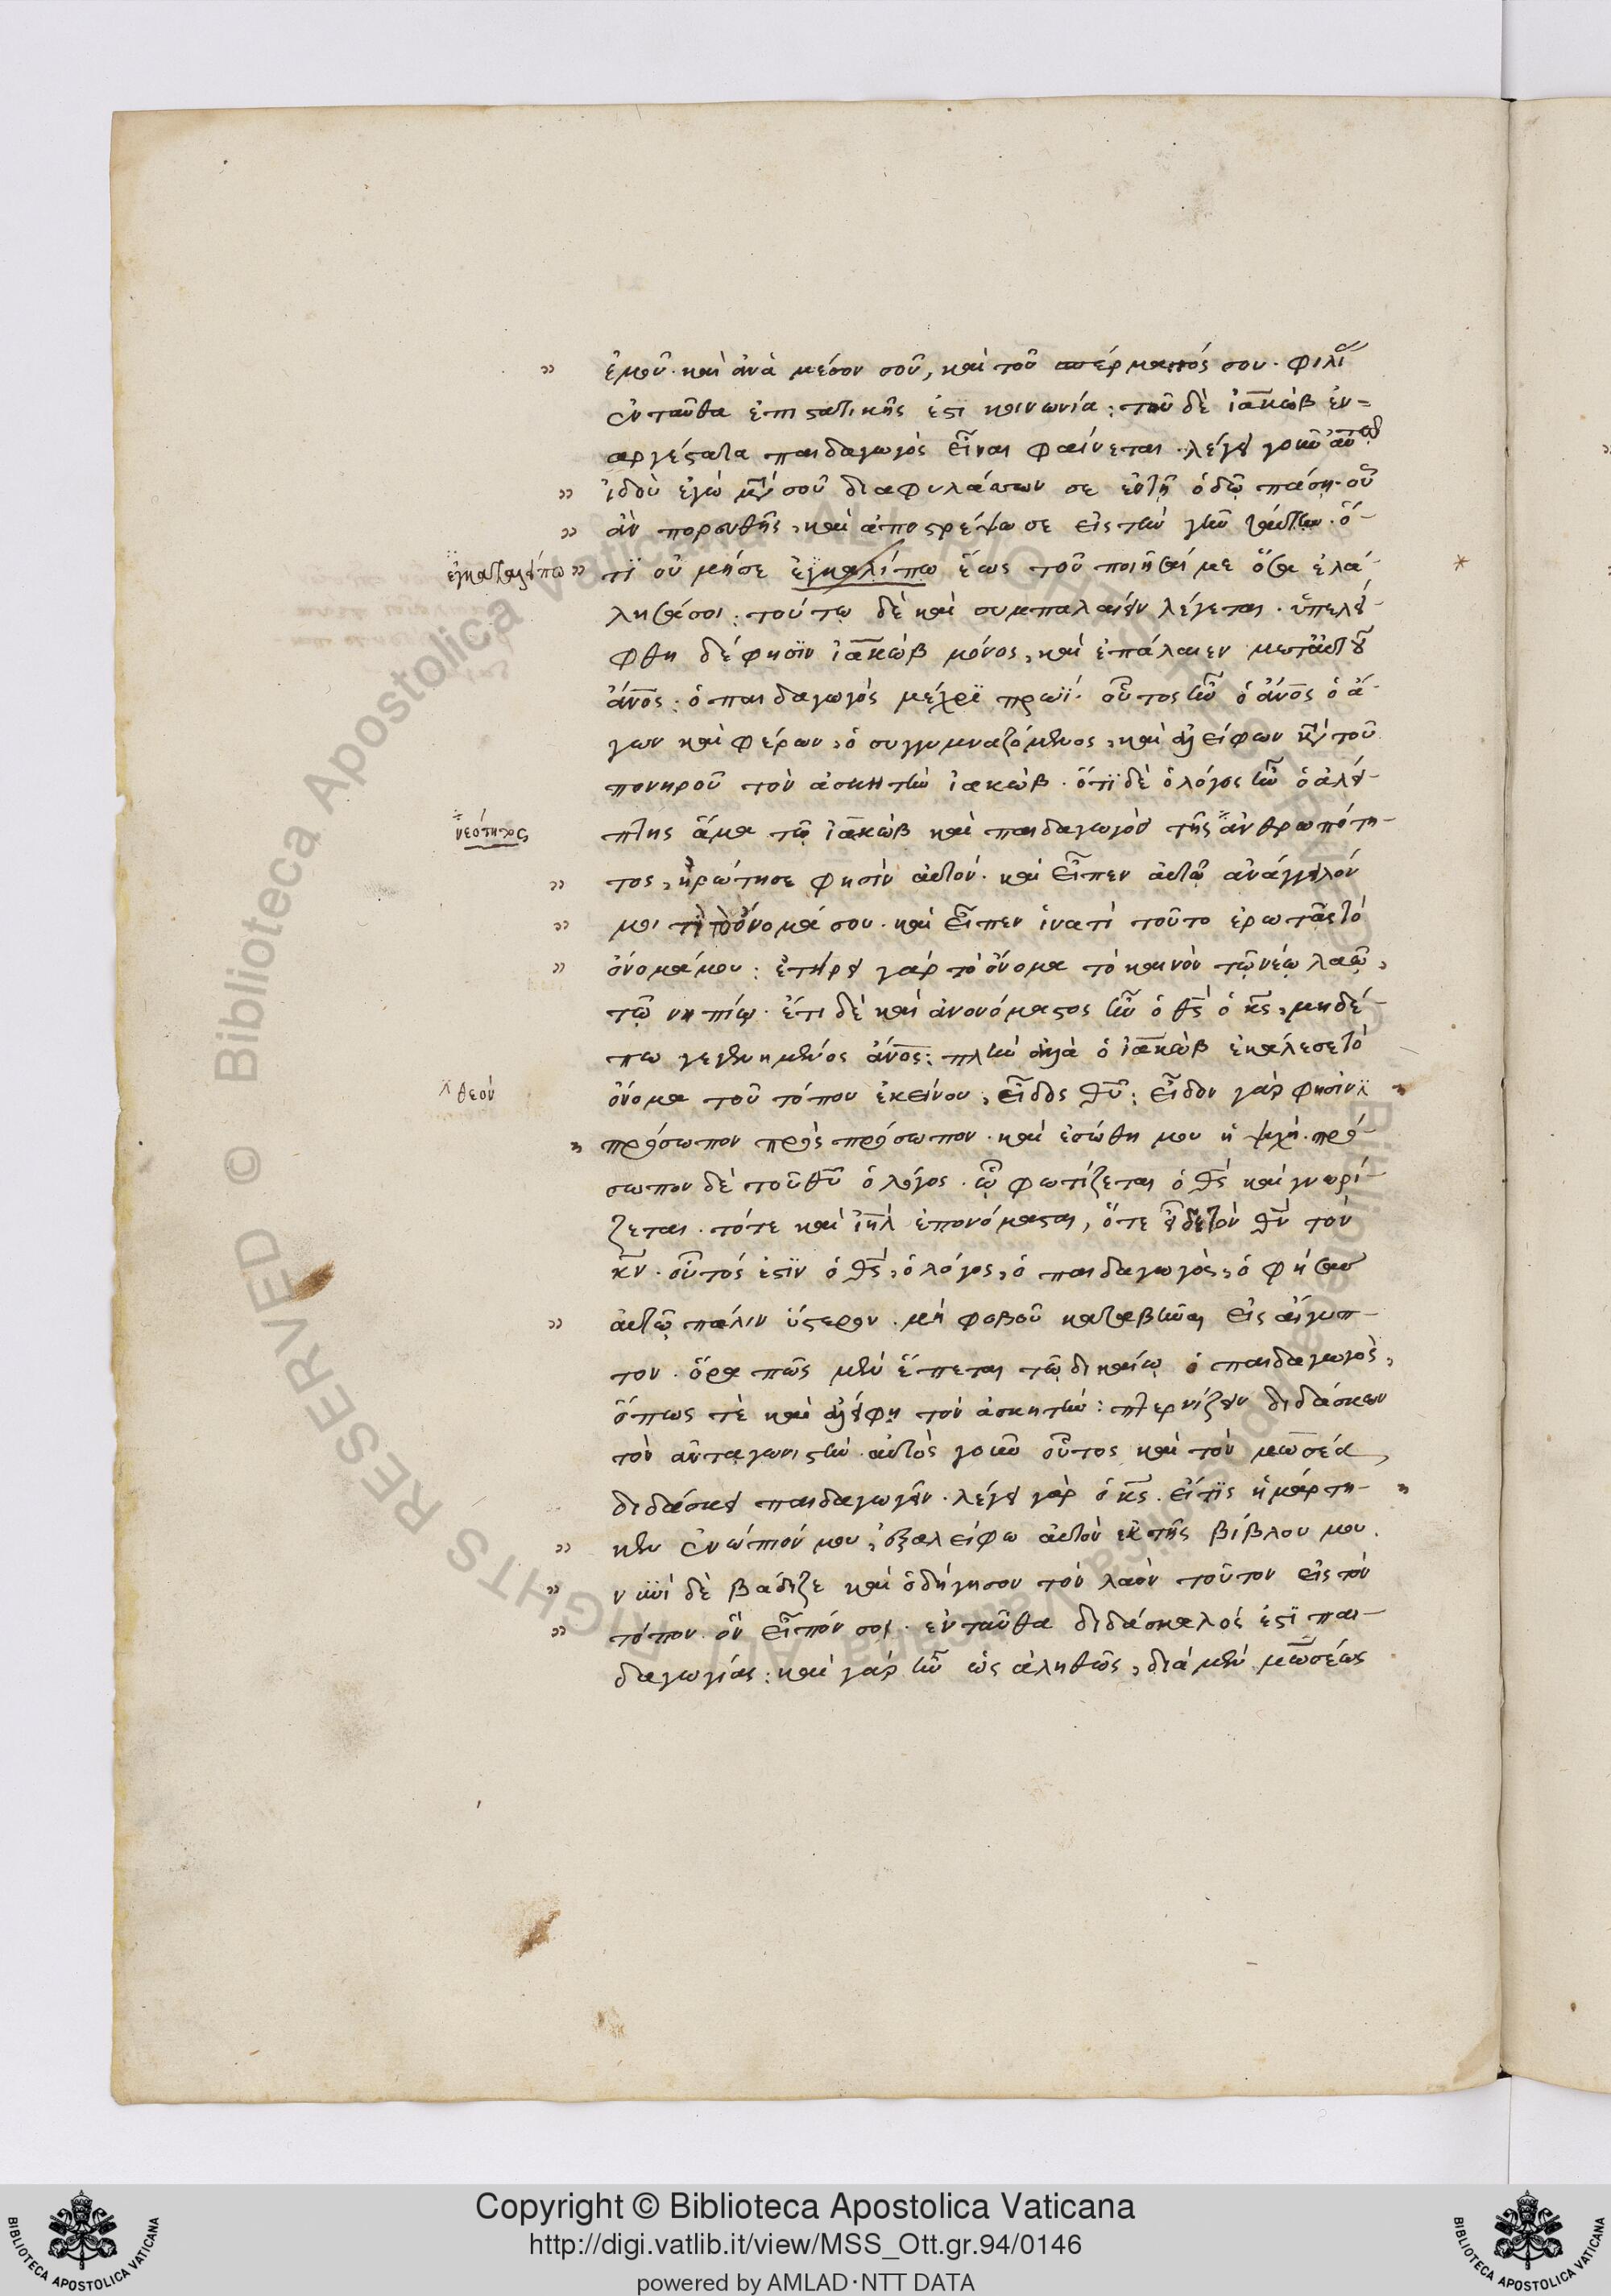 ἐμοῦ· καὶ ἀνὰ μέσον σοῦ, καὶ τοῦ σπέρματός σου· φιλι
ἐνταῦθα ἐπιστατικῆς ἐστὶ κοινωνία: τοῦ δὲ ἰακὼβ ἐν=
αργέστατα παιδαγωγὸς εἶναι φαίνεται· λέγει γοῦν αὐτῶ
ἰδοὺ ἐγὼ μετὰ σοῦ διαφυλάσσων σε ἐν τῇ ὁδῷ πάσῃ· οὗ
ἂν πορευθῇς, καὶ ἀποστρέψω σε εἰς τὴν γῆν ταύτην· ὅ-
ἐγκαταλείπω τι οὐ μή σε ἐγκαλίπω ἕως τοῦ ποιῆσαί με ὅσα ἐλά-
λησά σοι: τούτῳ δὲ καὶ συμπαλαίειν λέγεται· ὑπελεί-
φθη δέ φησιν ἰακὼβ μόνος, καὶ ἐπάλαιεν μετ' αὐτοῦ
ἄνος: ὁ παιδαγωγός μέχρι πρωΐ· οὗτος ἦν ὁ ἄνος ὁ ἄ-
γων καὶ φέρων, ὁ συγγυμναζόμενος, καὶ ἀλείφων κατὰ τοῦ
πονηροῦ τὸν ἀσκητὴν ἰακώβ· ὅτι δὲ ὁ λόγος ἦν ὁ ἀλεί-
πτης ἅμα τῷ ἰακὼβ καὶ παιδαγωγὸν τῆς ἀνθρωπότη-
τος, ἠρώτησε φησὶν αὐτόν· καὶ εἶπεν αὐτῷ ἀνάγγειλόν
μοι τί τὸ ὄνομά σου· καὶ εἶπεν ἱνατί τοῦτο ἐρωτᾷς τὸ
ὄνομά μου: ἐτήρει γὰρ τὸ ὄνομα τὸ καινὸν τῷ νέῳ λαῷ,
τῷ νηπίῳ· ἔτι δὲ καὶ ἀνονόμαστος ἦν ὁ θς ὁ κς, μηδέ-
πω γεγενημένος ἄνος: πλὴν ἀλλὰ ὁ ἰακὼβ ἐκάλεσε τὸ
θεόν ὄνομα τοῦ τόπου ἐκείνου, εἶδος θυ: εἶδον γάρ φησιν
πρόσωπον πρὸς πρόσωπον· καὶ ἐσώθη μου ἡ ψυχή· πρό-
σωπον δὲ τοῦ θυ ὁ λόγος· ᾧ φωτίζεται ὁ θς καὶ γνωρί-
ζεται· τότε καὶ ιηλ ἐπονόμασται, ὅτε εἶδε τὸν θν τὸν
κν· οὗτός ἐστιν ὁ θς, ὁ λόγος, ὁ παιδαγωγὸς, ὁ φήσας
αὐτῷ πάλιν ὕστερον· μὴ φοβοῦ καταβῆναι εἰς αἴγυπ-
τον· ὅρα πῶς μὲν ἕπεται τῷ δικαίῳ ὁ παιδαγωγός,
ὅπως τὲ καὶ ἀλείφη τὸν ἀσκητήν: πτερνίζειν διδάσκων
τὸν ἀνταγωνιστήν· αὐτὸς γοῦν οὗτος καὶ τὸν μωσέα,
διδάσκει παιδαγωγεῖν· λέγει γὰρ ὁ κς· εἴ τις ἡμάρτη-
κεν ἐνώπιόν μου, ἐξαλείφω αὐτὸν ἐκ τῆς βίβλου μου·
νυνὶ δὲ βάδιζε καὶ ὁδήγησον τὸν λαὸν τοῦτον εἰς τὸν
τόπον ὃν εἶπόν σοι· ἐνταῦθα διδάσκαλός ἐστι παι-
δαγωγίας: καὶ γὰρ ἦν ὡς ἀληθῶς, διὰ μὲν μωσέως
Copyright © Biblioteca Apostolica Vaticana
http://digi.vatlib.it/view/MSS_Ott.gr.94/0146
powered by AMLAD·NTT DATA